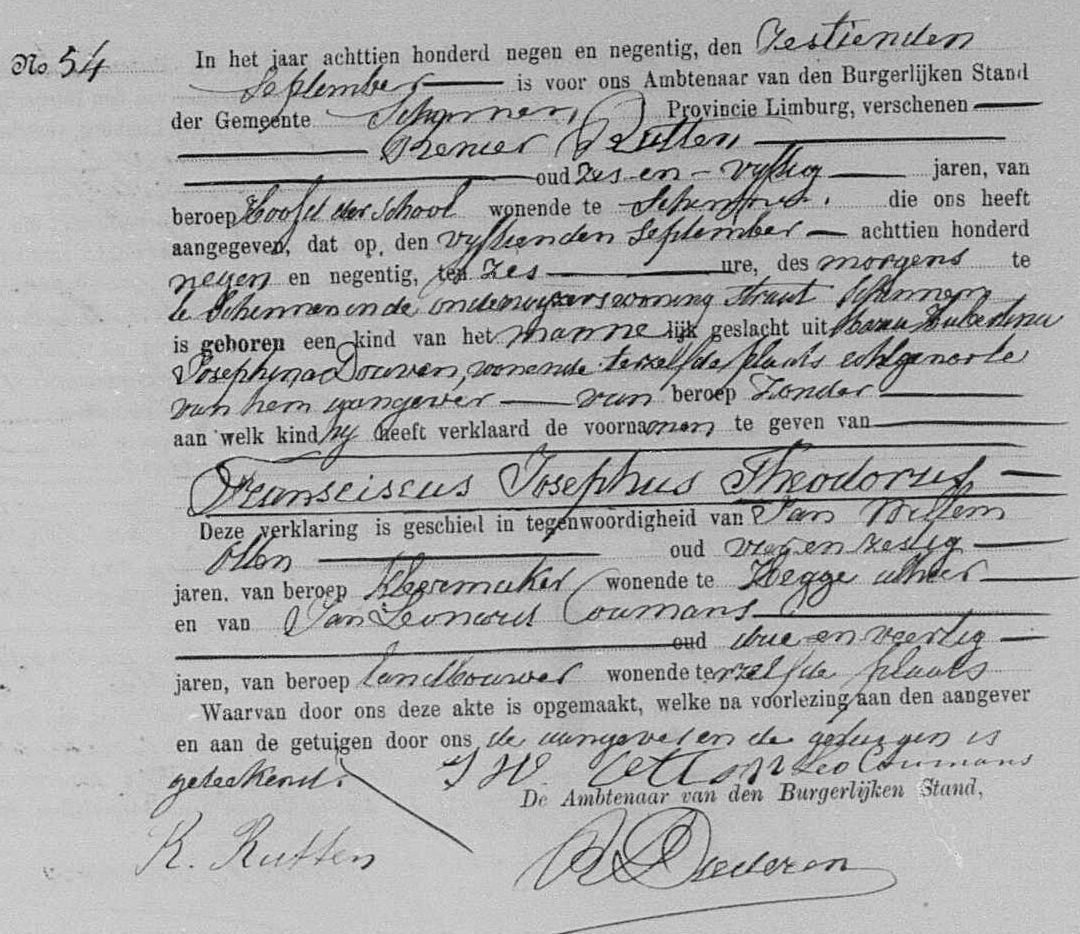 No. 54 In het jaar achttien honderd negen en negentig, den Zestienden
September is voor ons Ambtenaar van den Burgerlijken Stand
der Gemeente Schinnen, Provincie Limburg, verschenen
Renier Rutten
oud zes-en-vijftig jaren, van
beroep Hoofd der School wonende te Schinnen. die ons heeft
aangegeven, dat op den vyftienden September achttien honderd
negen en negentig, ten zes ure, des morgens te
te Schinnen in de onderwyzerswoning straat Schinnen
is geboren een kind van het manne lijk geslacht uit Maria Hubertina
Josephina Douven, wonende terzelfde plaats echtgenoote
van hem aangever van beroep Zonder
aan welk kind hy heeft verklaard de voornamen te geven van
Fransciscus Josephus Theodorus
Deze verklaring is geschied in tegenwoordigheid van Jan Willem
oud vier en zestig
jaren, van beroep Kleermaker wonende te Hegge alhier
en van Jan Leonard Coumans
oud drie en veertig
jaren, van beroep landbouwer wonende terzelfde plaats
Waarvan door ons deze akte is opgemaakt, welke na voorlezing aan den aangever
en aan de getuigen door ons de aangever en de getuigen is
geteekend.
J W Leo Coumans
De Ambtenaar van den Burgerlijken Stand,
R. Rutten